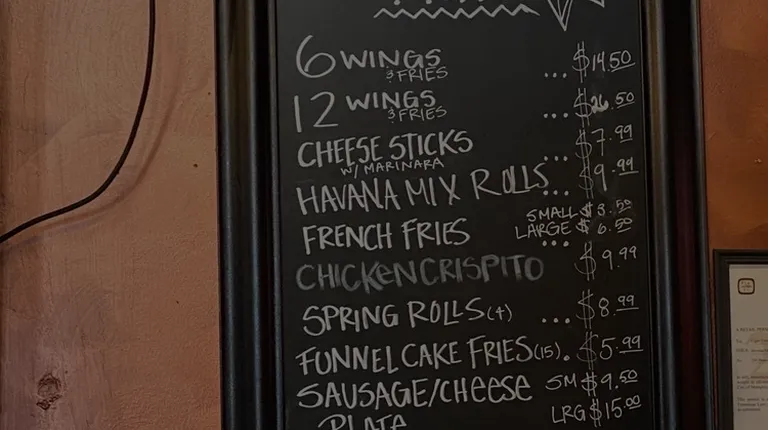 6 WINGS & FRIES ... $14.50
12 WINGS & FRIES ... $26.50
CHEESE STICKS W/ MARINARA ... $7.99
HAVANA MIX ROLLS ... $9.99
FRENCH FRIES SMALL $3.50
LARGE $6.50
CHICKEN CRISPITO ... $9.99
SPRING ROLLS (4) ... $8.99
FUNNEL CAKE FRIES (15). $5.99
SAUSAGE/CHEESE SM $9.50
PLATE LRG $15.00